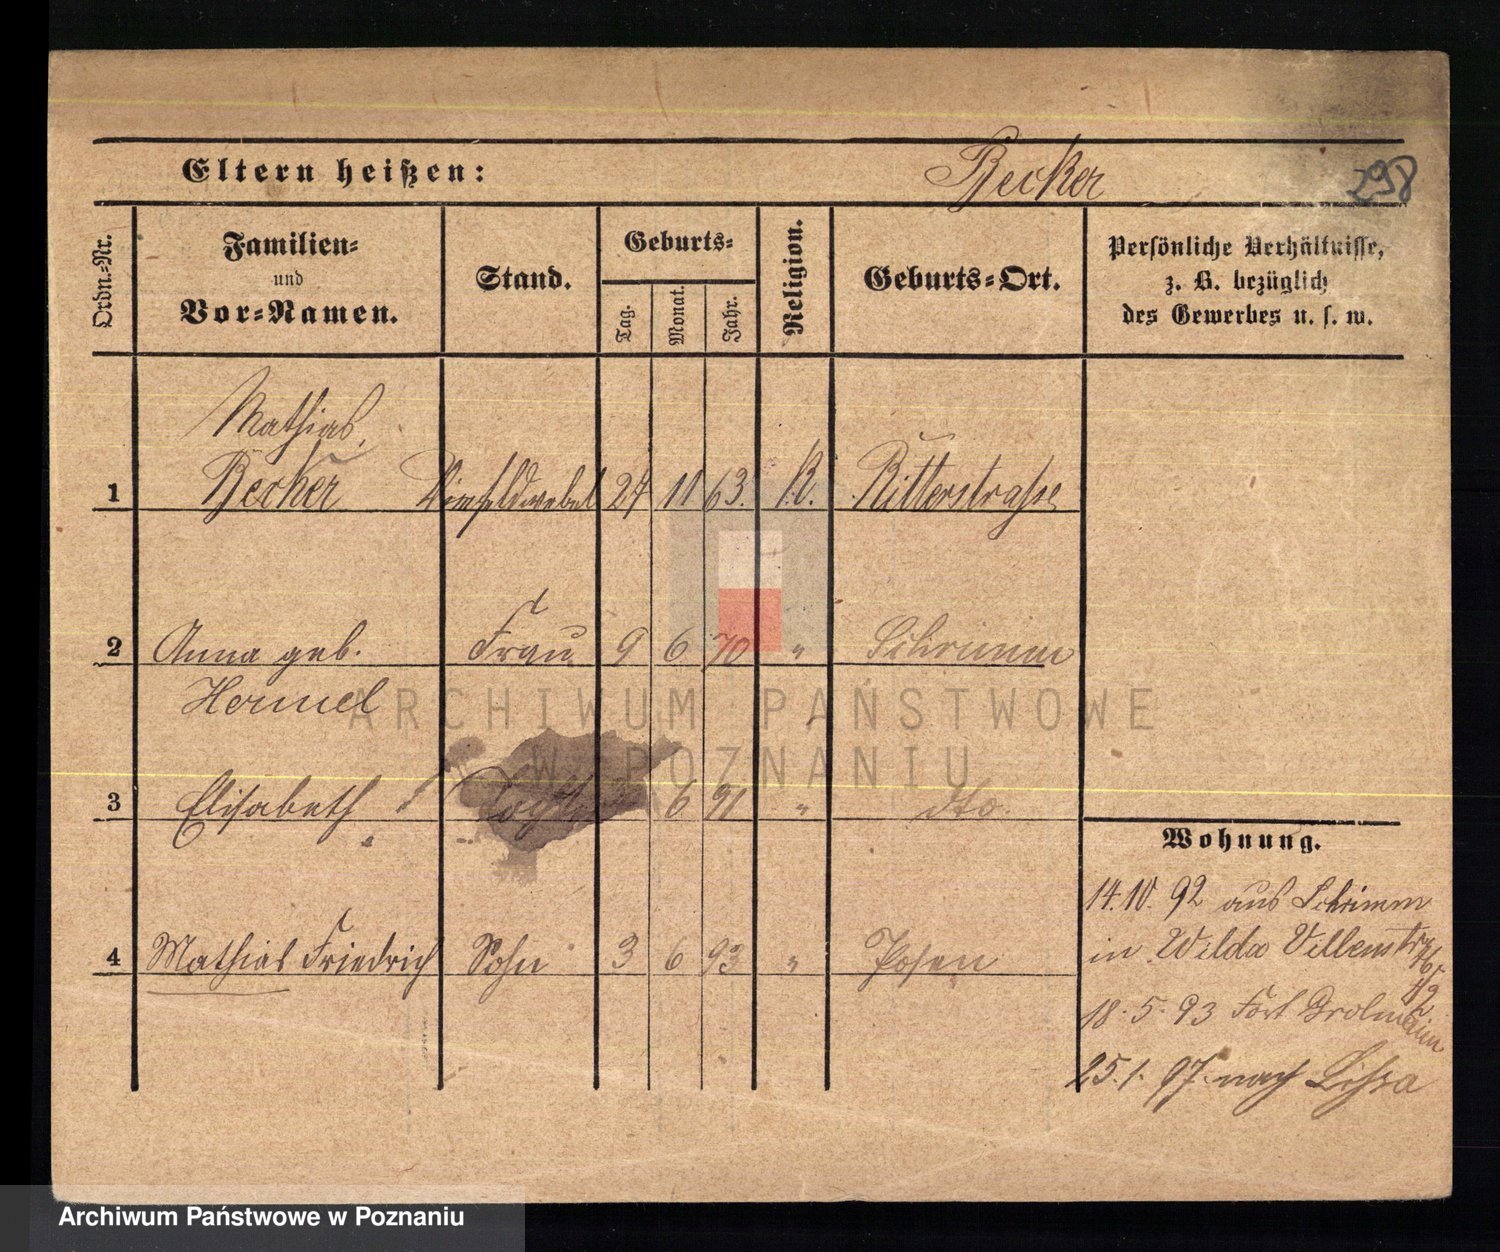 Eltern heißen: Becker 298
Ordn.-Nr. Familien- und Vor-Namen. Stand. Geburts- Tag. Monat. Jahr. Religion. Geburts-Ort. Persönliche Verhältnisse, z. B. bezüglich des Gewerbes u. s. w.
Mathias
1 Becker Vizefeldwebel 24 11 63. K. Ritterstraße
2 Anna geb. Frau 9 6 70 " Schrimm
Hermel
3 Elisabeth 6 91 " dto.
4 Mathias Friedrich Sohn 3 6 93 " Posen
Wohnung.
14.10.92 aus Schrimm
in Wilda
18.5.93 Fort Grolmann
25.1.97. nach Lissa
ARCHIWUM PAŃSTWOWE
W POZNANIU
Archiwum Państwowe w Poznaniu